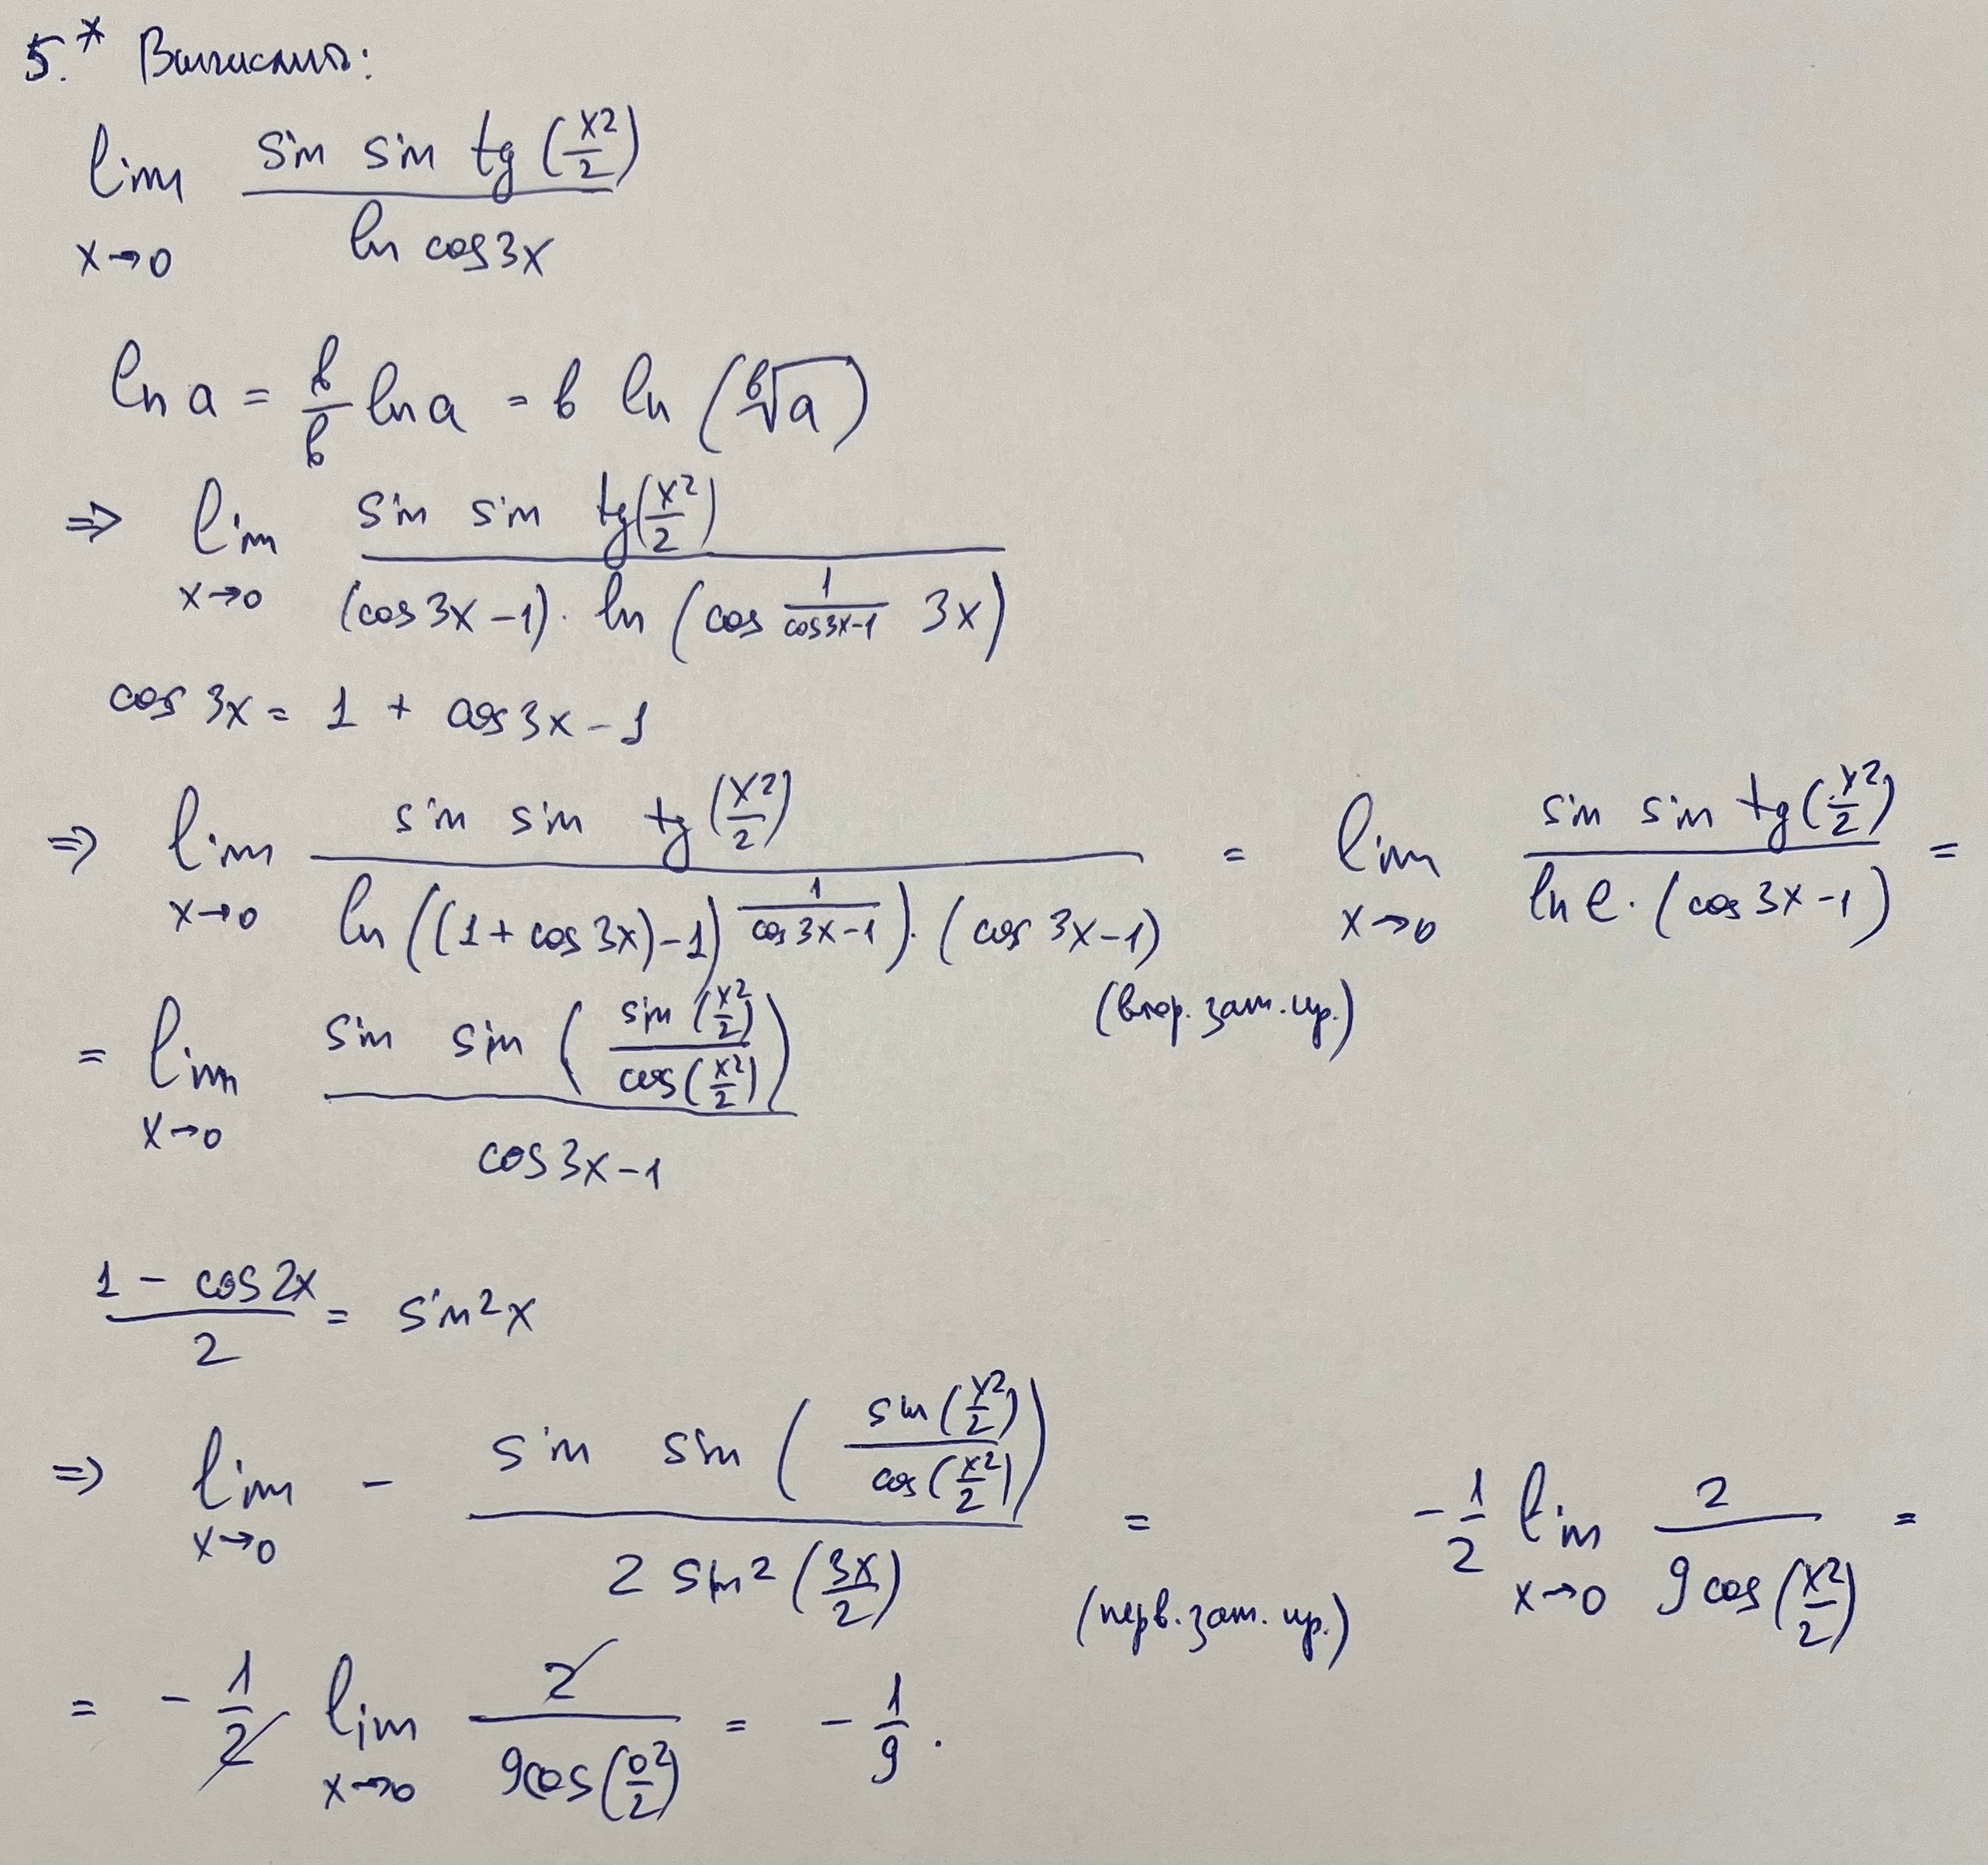 5.* Вычислить:
lim x→0 sin sin tg (x²/2) / ln cos3x
ln a = b/b ln a = b ln (ᵇ√a)
⇒ lim x→0 sin sin tg(x²/2) / (cos 3x − 1) · ln (cos^(1/(cos3x−1)) 3x)
cos 3x = 1 + cos 3x − 1
⇒ lim x→0 sin sin tg (x²/2) / ln ((1 + cos 3x) − 1)^(1/(cos 3x − 1)) · (cos 3x − 1) = (втор. зам. пр.) lim x→0 sin sin tg (x²/2) / ln e · (cos 3x − 1) =
= lim x→0 sin sin (sin (x²/2) / cos (x²/2)) / cos 3x − 1
1 − cos 2x / 2 = sin² x
⇒ lim x→0 − sin sin (sin (x²/2) / cos (x²/2)) / 2 sin² (3x/2) = (перв. зам. пр.) −1/2 lim x→0 2 / 9 cos (x²/2) =
= −1/2 lim x→0 2 / 9cos (0²/2) = −1/9.